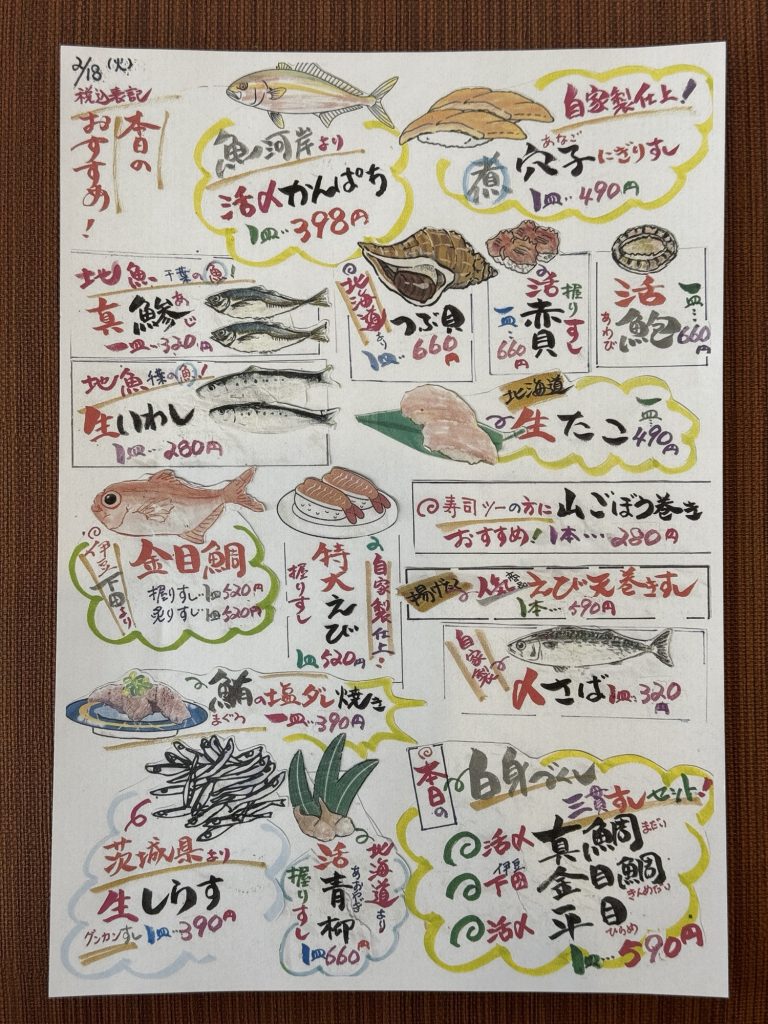 2/18(火)
税込表記
本日の
おすすめ!
魚河岸より
活〆かんぱち
1皿…398円
自家製仕上!
煮穴子にぎりすし
あなご
1皿…490円
地魚千葉の魚!
真鯵
あじ
一皿…320円
北海道より
つぶ貝
1皿…660円
握りすし
活赤貝
一皿…660円
活鮑
あわび
一皿…660円
地魚千葉の魚!
生いわし
1皿…280円
北海道
生たこ
一皿…490円
寿司ツーの方に
おすすめ!
山ごぼう巻き
1本…280円
伊豆下田より
金目鯛
握りすし…1皿520円
炙りすし…1皿520円
自家製仕上!
特大えび
握りすし
1皿520円
揚げたて
人気商品
えび天巻きすし
1本…590円
自家製
〆さば
1皿…320円
鮪の塩ダレ焼き
まぐろ
一皿…390円
茨城県より
生しらす
グンカンすし
1皿…390円
北海道より
活青柳
あおやぎ
握りすし
1皿660円
本日の
白身づくし
三貫すしセット!
活〆真鯛
まだい
伊豆下田金目鯛
きんめだい
活〆平目
ひらめ
1皿…590円